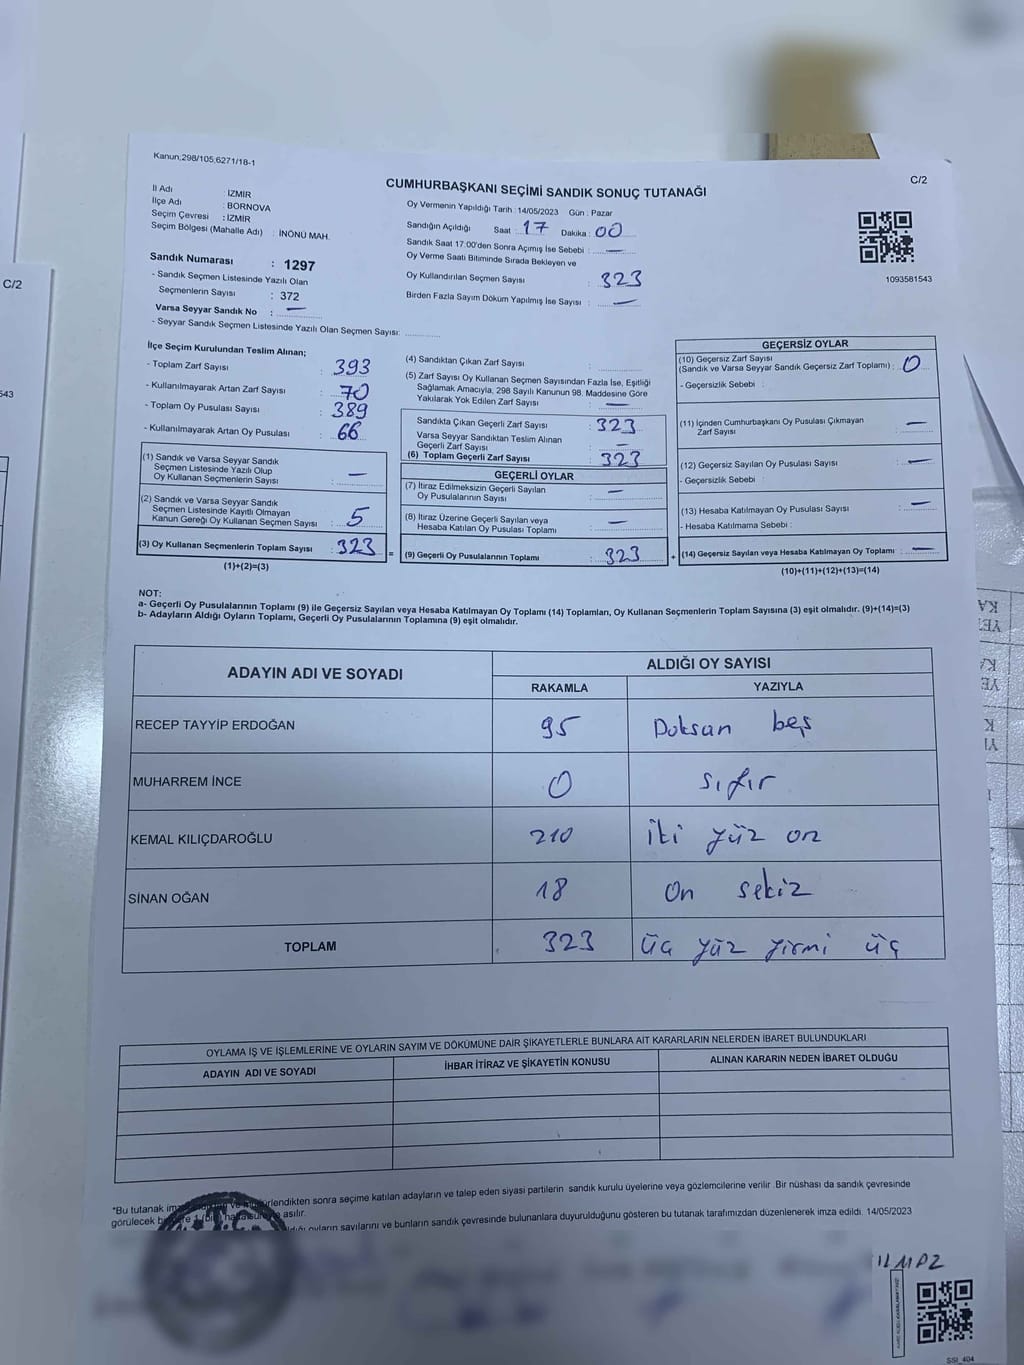 Kanun,298/105,6271/18-1
C/2
CUMHURBAŞKANI SEÇİMİ SANDIK SONUÇ TUTANAĞI
İl Adı : İZMİR
İlçe Adı : BORNOVA
Seçim Çevresi : İZMİR
Seçim Bölgesi (Mahalle Adı) : İNÖNÜ MAH.
Sandık Numarası : 1297
- Sandık Seçmen Listesinde Yazılı Olan
Seçmenlerin Sayısı : 372
Varsa Seyyar Sandık No : —
- Seyyar Sandık Seçmen Listesinde Yazılı Olan Seçmen Sayısı:
Oy Vermenin Yapıldığı Tarih : 14/05/2023 Gün : Pazar
Sandığın Açıldığı Saat : 17 Dakika : 00
Sandık Saat 17:00'den Sonra Açımış İse Sebebi : —
Oy Verme Saati Bitiminde Sırada Bekleyen ve
Oy Kullandırılan Seçmen Sayısı : 323
Birden Fazla Sayım Döküm Yapılmış İse Sayısı : —
1093581543
İlçe Seçim Kurulundan Teslim Alınan;
- Toplam Zarf Sayısı : 393
- Kullanılmayarak Artan Zarf Sayısı : 70
- Toplam Oy Pusulası Sayısı : 389
- Kullanılmayarak Artan Oy Pusulası : 66
(1) Sandık ve Varsa Seyyar Sandık
Seçmen Listesinde Yazılı Olup
Oy Kullanan Seçmenlerin Sayısı : —
(2) Sandık ve Varsa Seyyar Sandık
Seçmen Listesinde Kayıtlı Olmayan
Kanun Gereği Oy Kullanan Seçmen Sayısı : 5
(3) Oy Kullanan Seçmenlerin Toplam Sayısı : 323
(1)+(2)=(3)
=
(4) Sandıktan Çıkan Zarf Sayısı :
(5) Zarf Sayısı Oy Kullanan Seçmen Sayısından Fazla İse, Eşitliği
Sağlamak Amacıyla, 298 Sayılı Kanunun 98. Maddesine Göre
Yakılarak Yok Edilen Zarf Sayısı : —
Sandıkta Çıkan Geçerli Zarf Sayısı : 323
Varsa Seyyar Sandıktan Teslim Alınan
Geçerli Zarf Sayısı : —
(6) Toplam Geçerli Zarf Sayısı : 323
GEÇERLİ OYLAR
(7) İtiraz Edilmeksizin Geçerli Sayılan
Oy Pusulalarının Sayısı : —
(8) İtiraz Üzerine Geçerli Sayılan veya
Hesaba Katılan Oy Pusulası Toplamı : —
(9) Geçerli Oy Pusulalarının Toplamı : 323
+
GEÇERSİZ OYLAR
(10) Geçersiz Zarf Sayısı
(Sandık ve Varsa Seyyar Sandık Geçersiz Zarf Toplamı) : 0
- Geçersizlik Sebebi :
(11) İçinden Cumhurbaşkanı Oy Pusulası Çıkmayan
Zarf Sayısı : —
(12) Geçersiz Sayılan Oy Pusulası Sayısı : —
- Geçersizlik Sebebi :
(13) Hesaba Katılmayan Oy Pusulası Sayısı : —
- Hesaba Katılmama Sebebi :
(14) Geçersiz Sayılan veya Hesaba Katılmayan Oy Toplamı : —
(10)+(11)+(12)+(13)=(14)
NOT:
a- Geçerli Oy Pusulalarının Toplamı (9) ile Geçersiz Sayılan veya Hesaba Katılmayan Oy Toplamı (14) Toplamları, Oy Kullanan Seçmenlerin Toplam Sayısına (3) eşit olmalıdır. (9)+(14)=(3)
b- Adayların Aldığı Oyların Toplamı, Geçerli Oy Pusulalarının Toplamına (9) eşit olmalıdır.
ADAYIN ADI VE SOYADI ALDIĞI OY SAYISI
RAKAMLA YAZIYLA
RECEP TAYYİP ERDOĞAN 95 Doksan beş
MUHARREM İNCE 0 sıfır
KEMAL KILIÇDAROĞLU 210 iki yüz on
SİNAN OĞAN 18 on sekiz
TOPLAM 323 üç yüz yirmi üç
OYLAMA İŞ VE İŞLEMLERİNE VE OYLARIN SAYIM VE DÖKÜMÜNE DAİR ŞİKAYETLERLE BUNLARA AİT KARARLARIN NELERDEN İBARET BULUNDUKLARI
ADAYIN ADI VE SOYADI İHBAR İTİRAZ VE ŞİKAYETİN KONUSU ALINAN KARARIN NEDEN İBARET OLDUĞU
*Bu tutanak sonra seçime katılan adayların ve talep eden siyasi partilerin sandık kurulu üyelerine veya gözlemcilerine verilir. Bir nüshası da sandık çevresinde
görülecek asılır.
oyların sayılarını ve bunların sandık çevresinde bulunanlara duyurulduğunu gösteren bu tutanak tarafımızdan düzenlenerek imza edildi. 14/05/2023
SSI_404
C/2
543